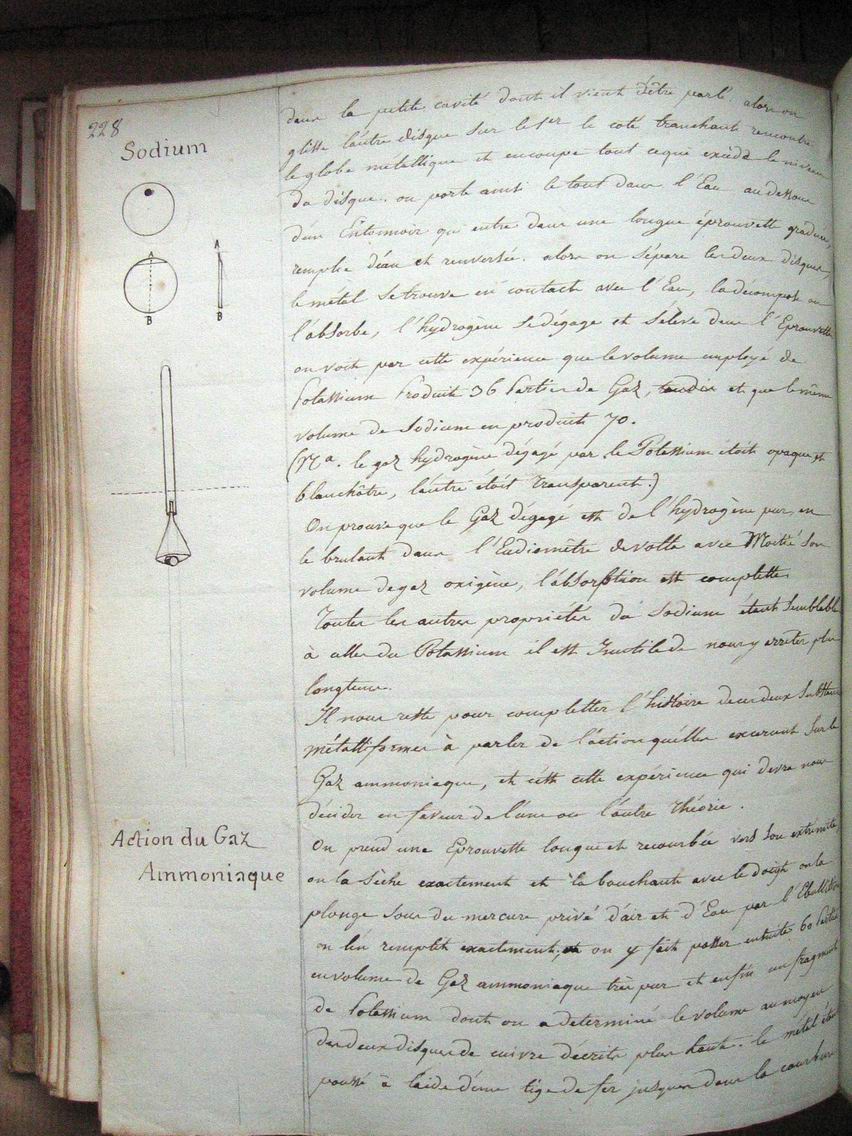 228
Sodium
A
B
A
B
Action du Gaz
Ammoniaque
dans la petite cavité dont il vient d'être parlé. alors on
glisse l'autre disque sur le 1er le coté tranchant rencontre
le globe métallique et en coupe tout ce qui excède le niveau
du disque. on porte ainsi le tout dans l'Eau au dessous
d'un Entonnoir qui entre dans une longue éprouvette graduée,
remplie d'eau et renversée. alors on sépare les deux disques,
le métal se trouve en contact avec l'Eau, la décompose ou
l'absorbe, l'hydrogène se dégage et s'élève dans l'Eprouvette
on voit par cette expérience que le volume employé de
Potassium produit 36 parties de Gaz, tandis et que le même
volume de Sodium en produit 70.
(Na. le gaz hydrogène dégagé par le Potassium étoit opaque et
blanchâtre, l'autre étoit transparent.)
On prouve que le Gaz dégagé est de l'hydrogène pur, en
le brulant dans l'Eudiomètre de volta avec Moitié son
volume de gaz oxigène, l'absorption est complette.
Toutes les autres propriétés du Sodium étant semblables
à celles du Potassium il est Inutile de nous y arrêter plus
longtems.
Il nous reste pour completter l'histoire de ces deux Substances
métalliformes à parler de l'action qu'elles exercent sur le
Gaz ammoniaque, et c'est cette expérience qui devra nous
décider en faveur de l'une ou l'autre Théorie.
On prend une Eprouvette longue et recourbée vers son extrémité
on la sèche exactement et la bouchant avec le doigt on la
plonge sous du mercure privé d'air et d'Eau par l'Ebullition
on l'en remplit exactement, on y fait passer ensuite 60 Parties
en volume de Gaz ammoniaque très pur et enfin un fragment
de Potassium dont on a determiné le volume au moyen
des deux disques de cuivre décrits plus haut. le métal étant
poussé à l'aide d'une tige de fer jusques dans la courbure